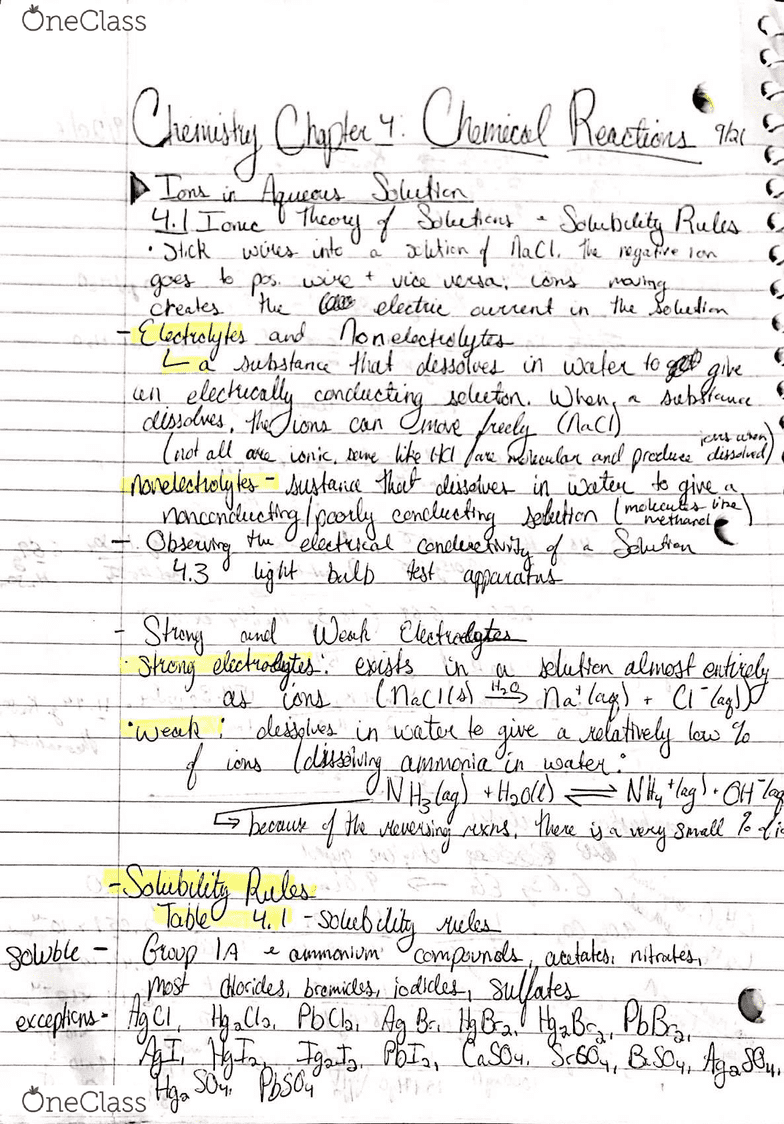 OneClass
Chemistry Chapter 4: Chemical Reactions 9/21
Ions in Aqueous Solution
4.1 Ionic Theory of Solutions + Solubility Rules
• Stick wires into a solution of NaCl, the negative ion
goes to pos. wire + vice versa; ions moving
creates the electric current in the solution
- Electrolytes and Nonelectrolytes
↳ a substance that dissolves in water to give
an electrically conducting solution. When a substance
dissolves, the ions can move freely (NaCl)
(not all are ionic, some like HCl are molecular and produce ions when dissolved)
nonelectrolytes - sustance that dissolves in water to give a
nonconducting/poorly conducting solution (molecules like methanol)
- Observing the electrical conductivity of a Solution
4.3 light bulb test apparatus
- Strong and Weak Electrolytes
• Strong electrolytes: exists in a solution almost entirely
as ions (NaCl(s) H₂O→ Na⁺(aq) + Cl⁻(aq))
• Weak: dissolves in water to give a relatively low %
of ions (dissolving ammonia in water:
NH₃(aq) + H₂O(l) ⇌ NH₄⁺(aq) + OH⁻(aq
↳ because of the reversing rxns, there is a very small % of i
- Solubility Rules
Table 4.1 - solubility rules
soluble - Group 1A + ammonium compounds, acetates, nitrates,
most chlorides, bromides, iodides, sulfates
exceptions - AgCl, Hg₂Cl₂, PbCl₂, AgBr, HgBr₂, Hg₂Br₂, PbBr₂,
AgI, HgI₂, Ig₂I₂, PbI₂, CaSO₄, SrSO₄, BaSO₄, Ag₂SO₄,
Hg₂SO₄, PbSO₄
OneClass